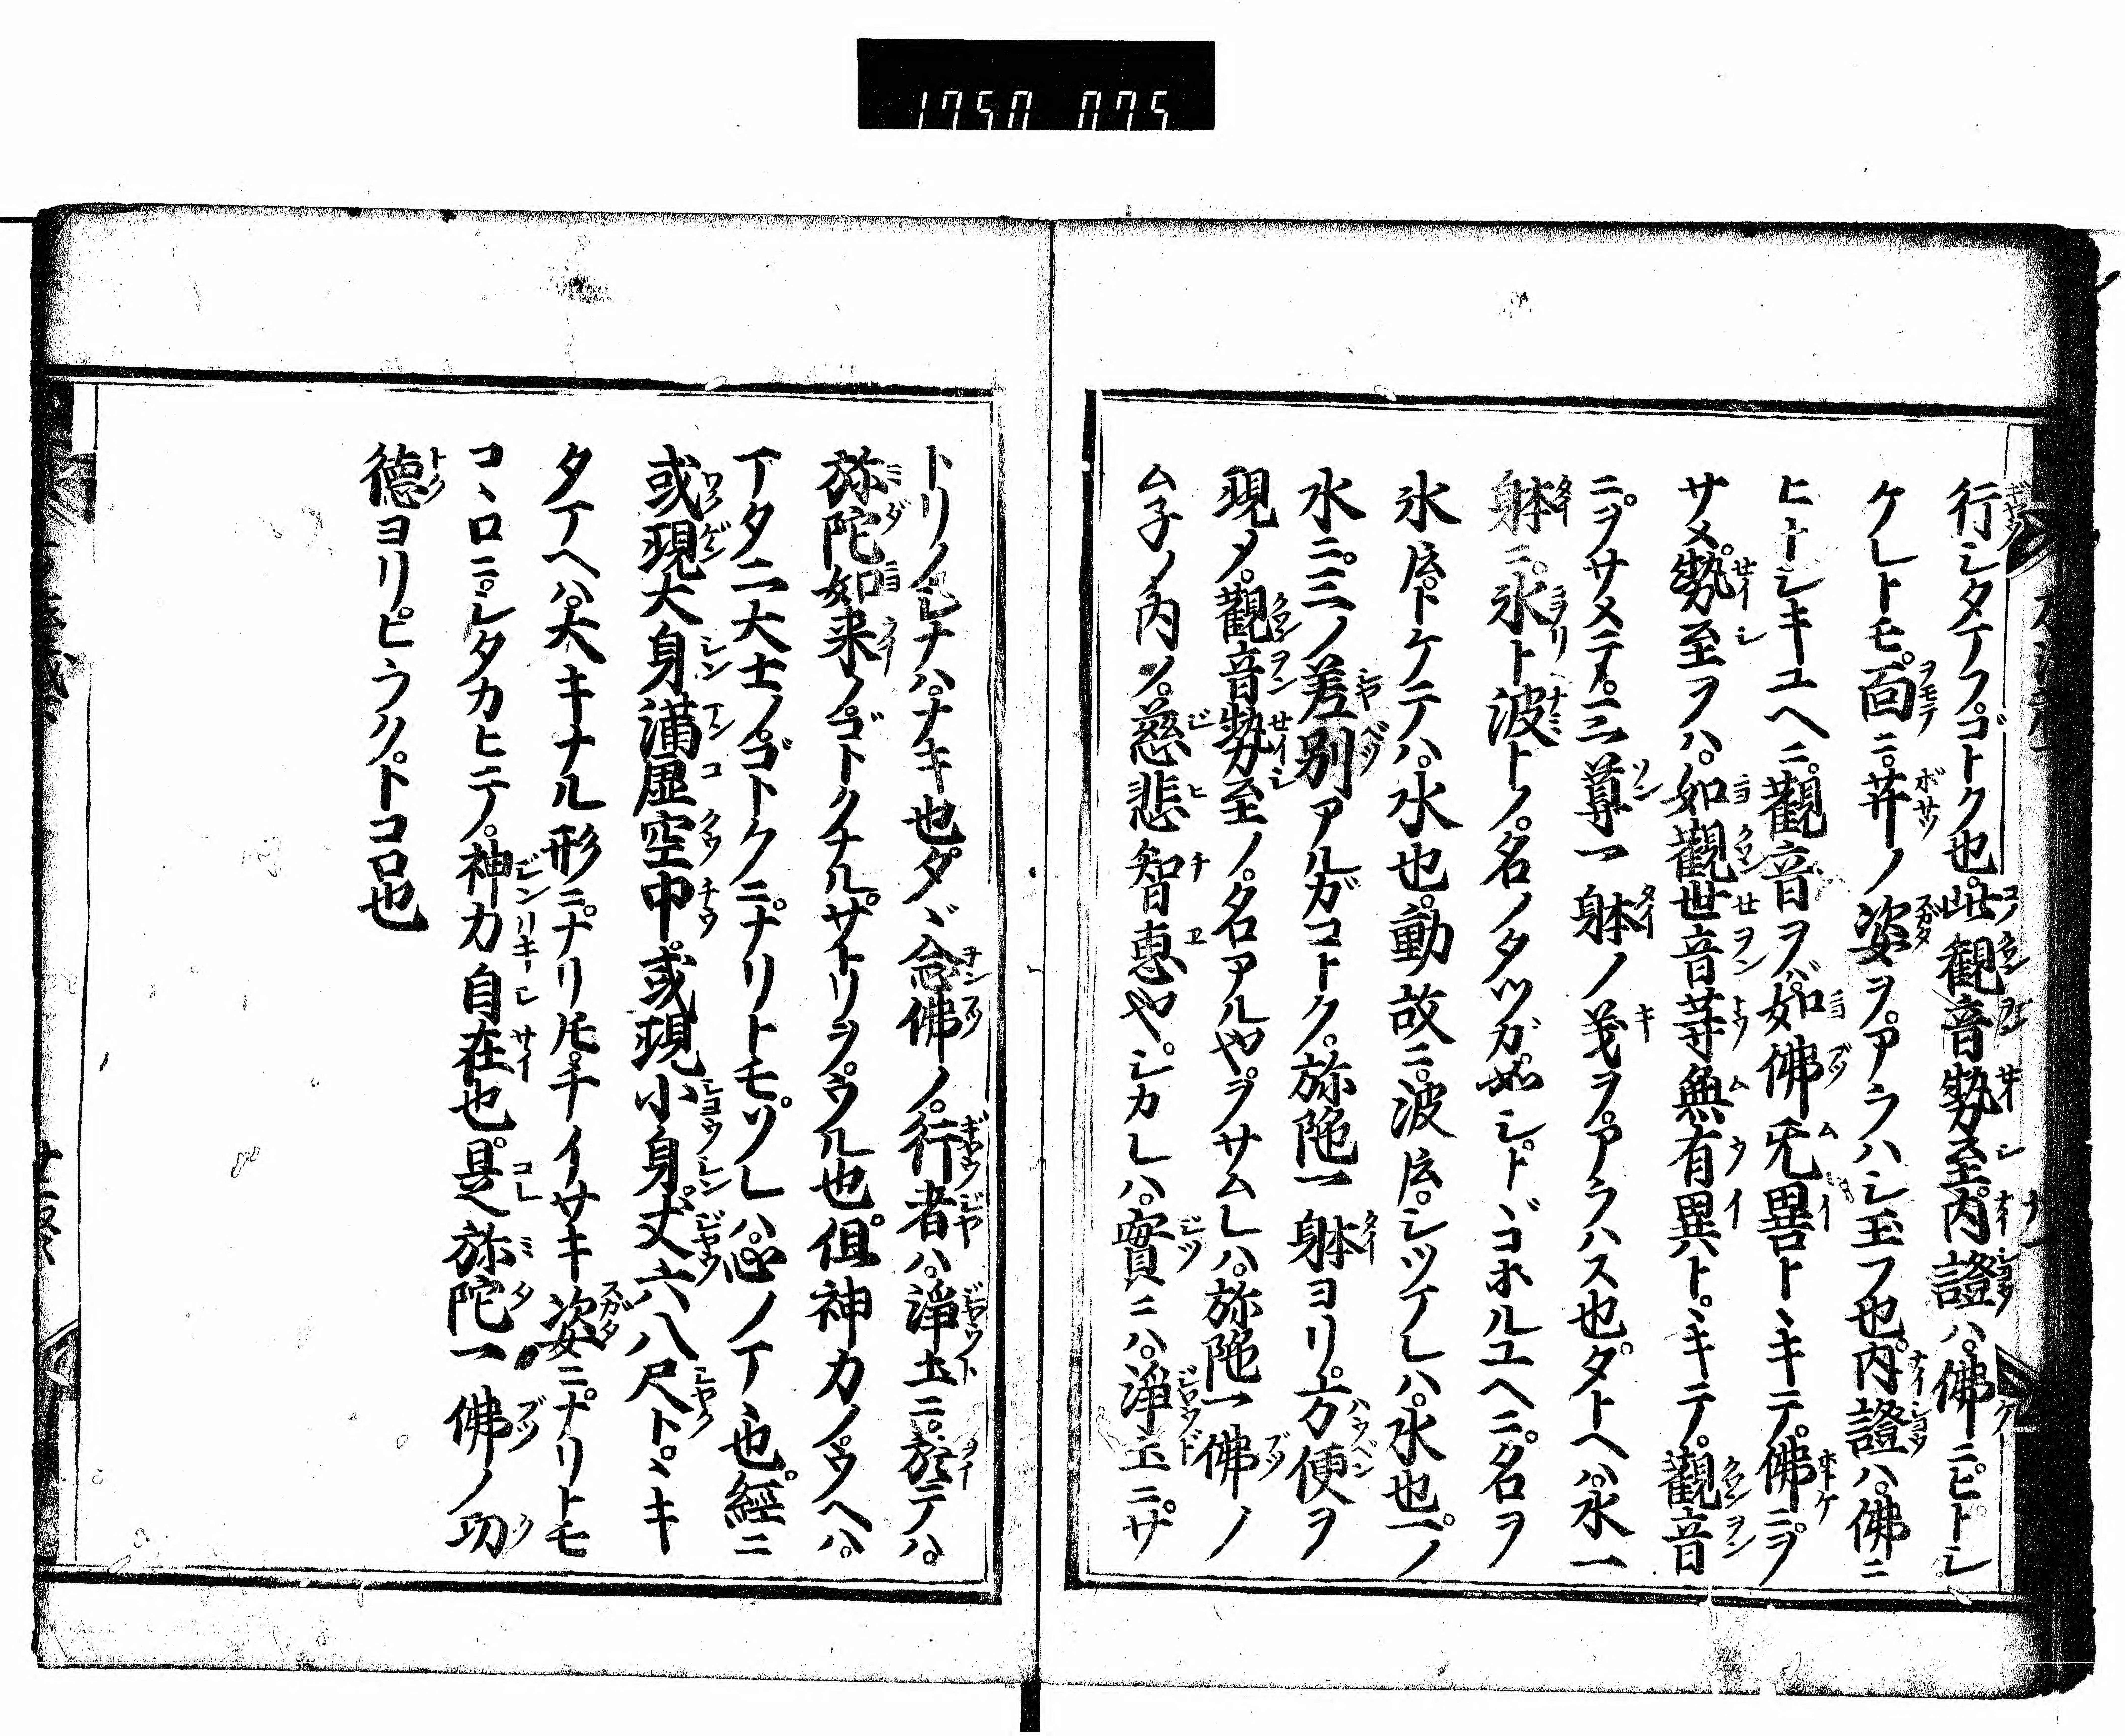 1750 075
行シタマフゴトク也。此觀音勢至内證ハ。佛ニヒトシ
ケレトモ。面ニ。菩薩ノ姿ヲ。アラハシ玉フ也。内證ハ。佛ニ
ヒトシキユヘニ。觀音ヲバ。如佛无異トヽキテ。佛ニヲ
サメ。勢至ヲハ。如觀世音等無有異ト。ヽキテ。觀音
ニヲサメテ。三尊一躰ノ義ヲ。アラハス也。タトヘハ。水一
躰ニ。氷ト波トノ。名ノタツガ如シ。トヾコホルユヘニ。名ヲ
氷𪜈。トケテハ。水也。動故ニ。波𪜈。シツマレハ。水也。一ノ
水ニ。三ノ差別アルガコトク。弥陀一躰ヨリ。方便ヲ
現メ。觀音勢至ノ。名アルヤ。ヲサムレハ。弥陀一佛ノ
ム子ノ内ノ。慈悲智恵ヤ。シカレハ。實ニハ。淨土ニ。サ
トリノシナハ。ナキ也。タヾ念佛ノ。行者ハ。淨土ニ。於テハ。
弥陀如来ノ。ゴトクナル。サトリヲ。ウル也。但神力ノ。ウヘハ。
マタ二大士ノ。ゴトクニ。ナリトモ。ソレハ心ノマヽ也。經ニ
或現大身滿虚空中。或現小身。丈六八尺ト。ヽキ
タマヘハ。大キナル形ニ。ナリ𪜈。チイサキ姿ニ。ナリトモ
コヽロニ。シタカヒテ。神力自在也。是弥陀一佛ノ功
德ヨリ。ヒラク。トコロ也